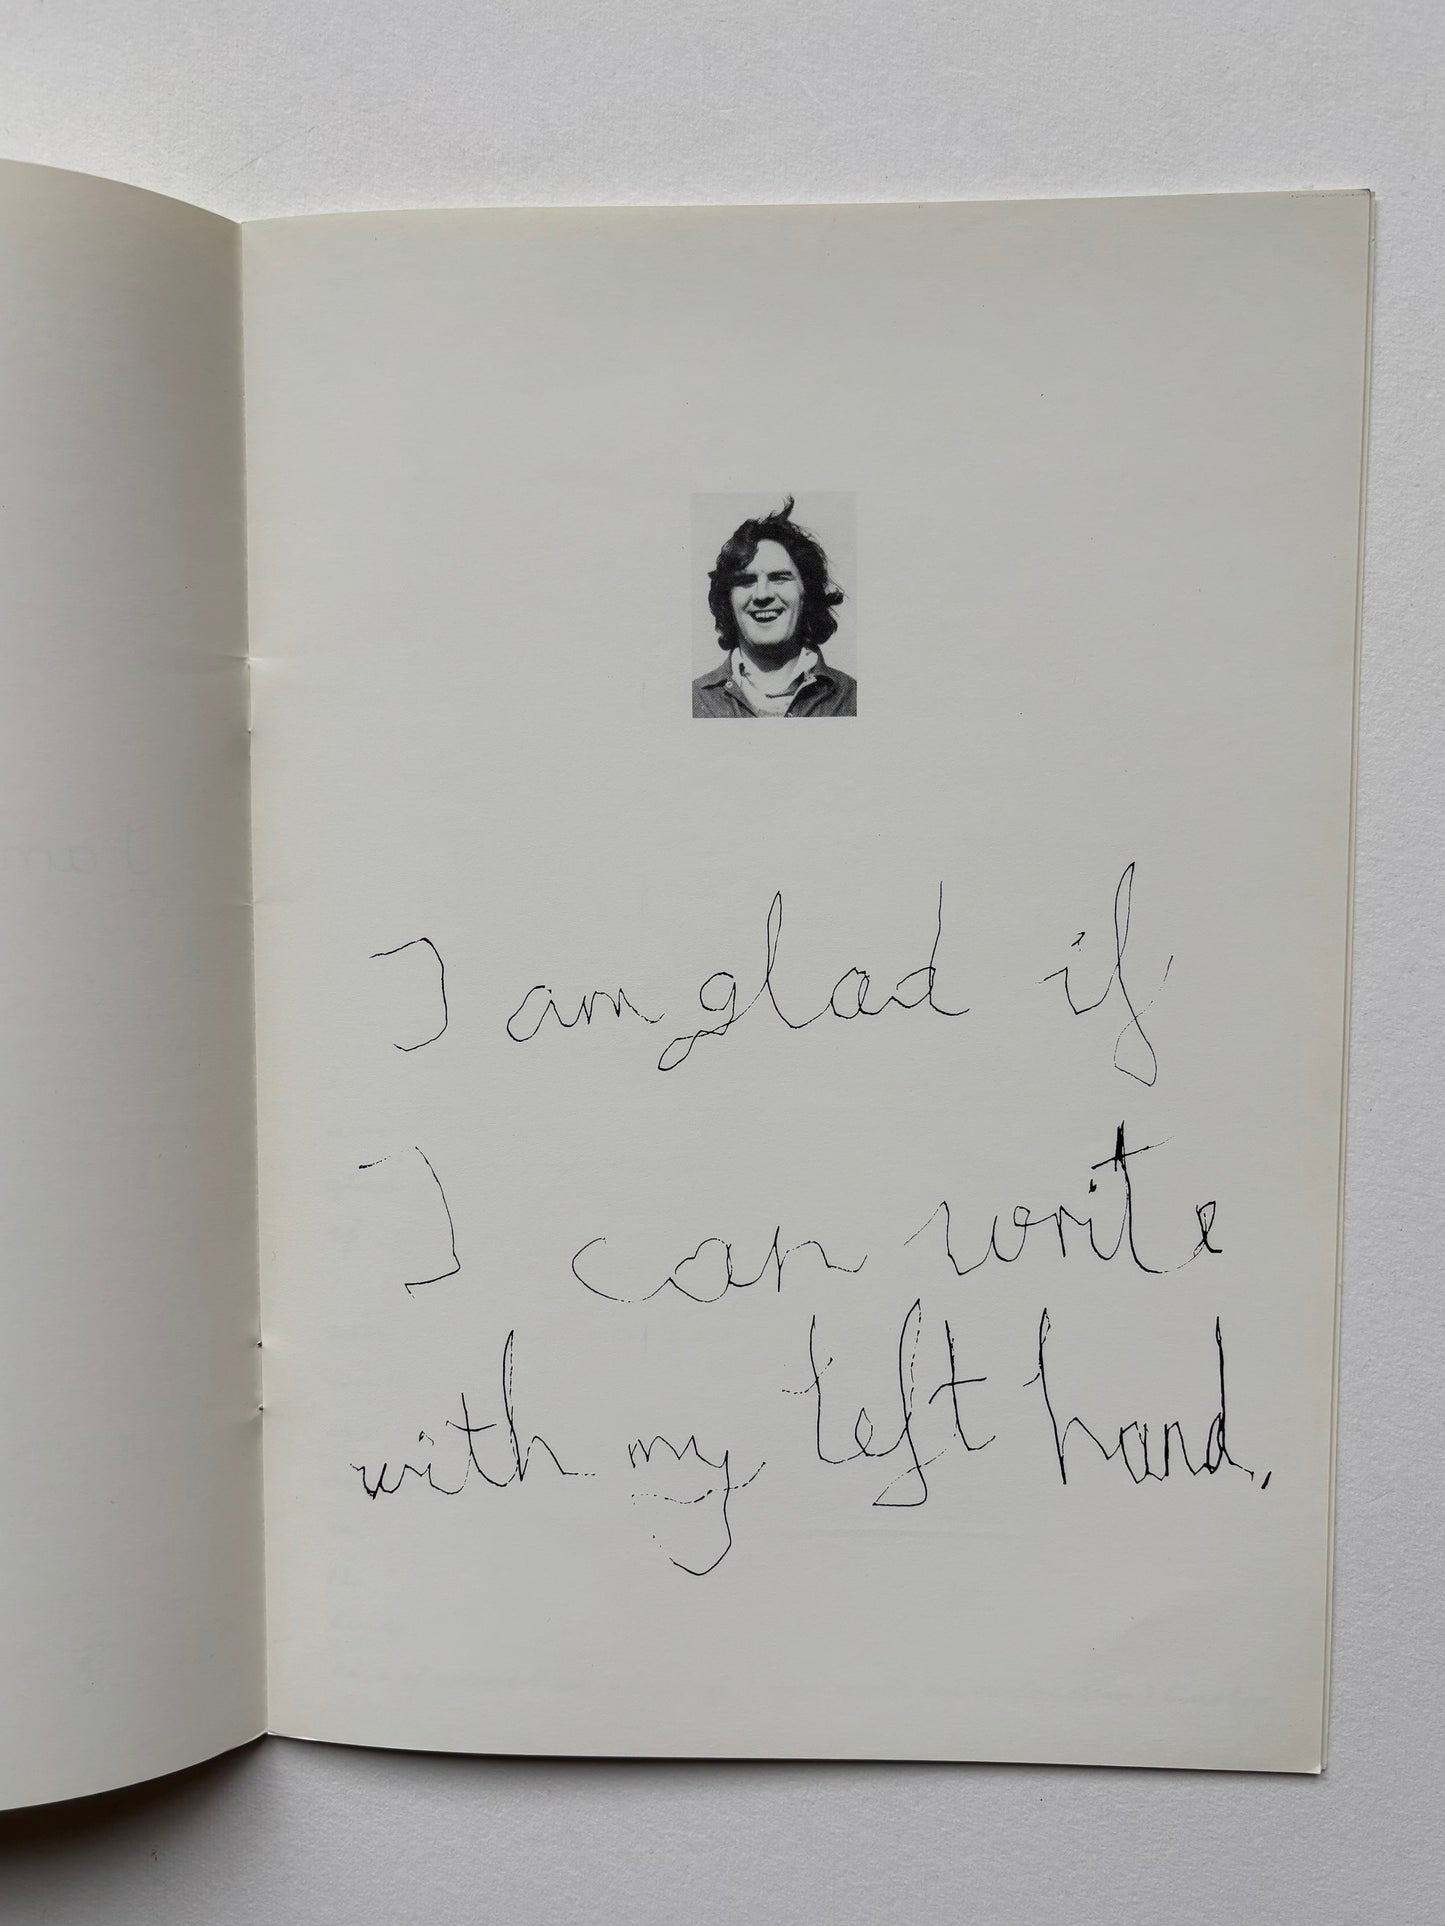 I am glad if
I can write
with my left hand.
I am